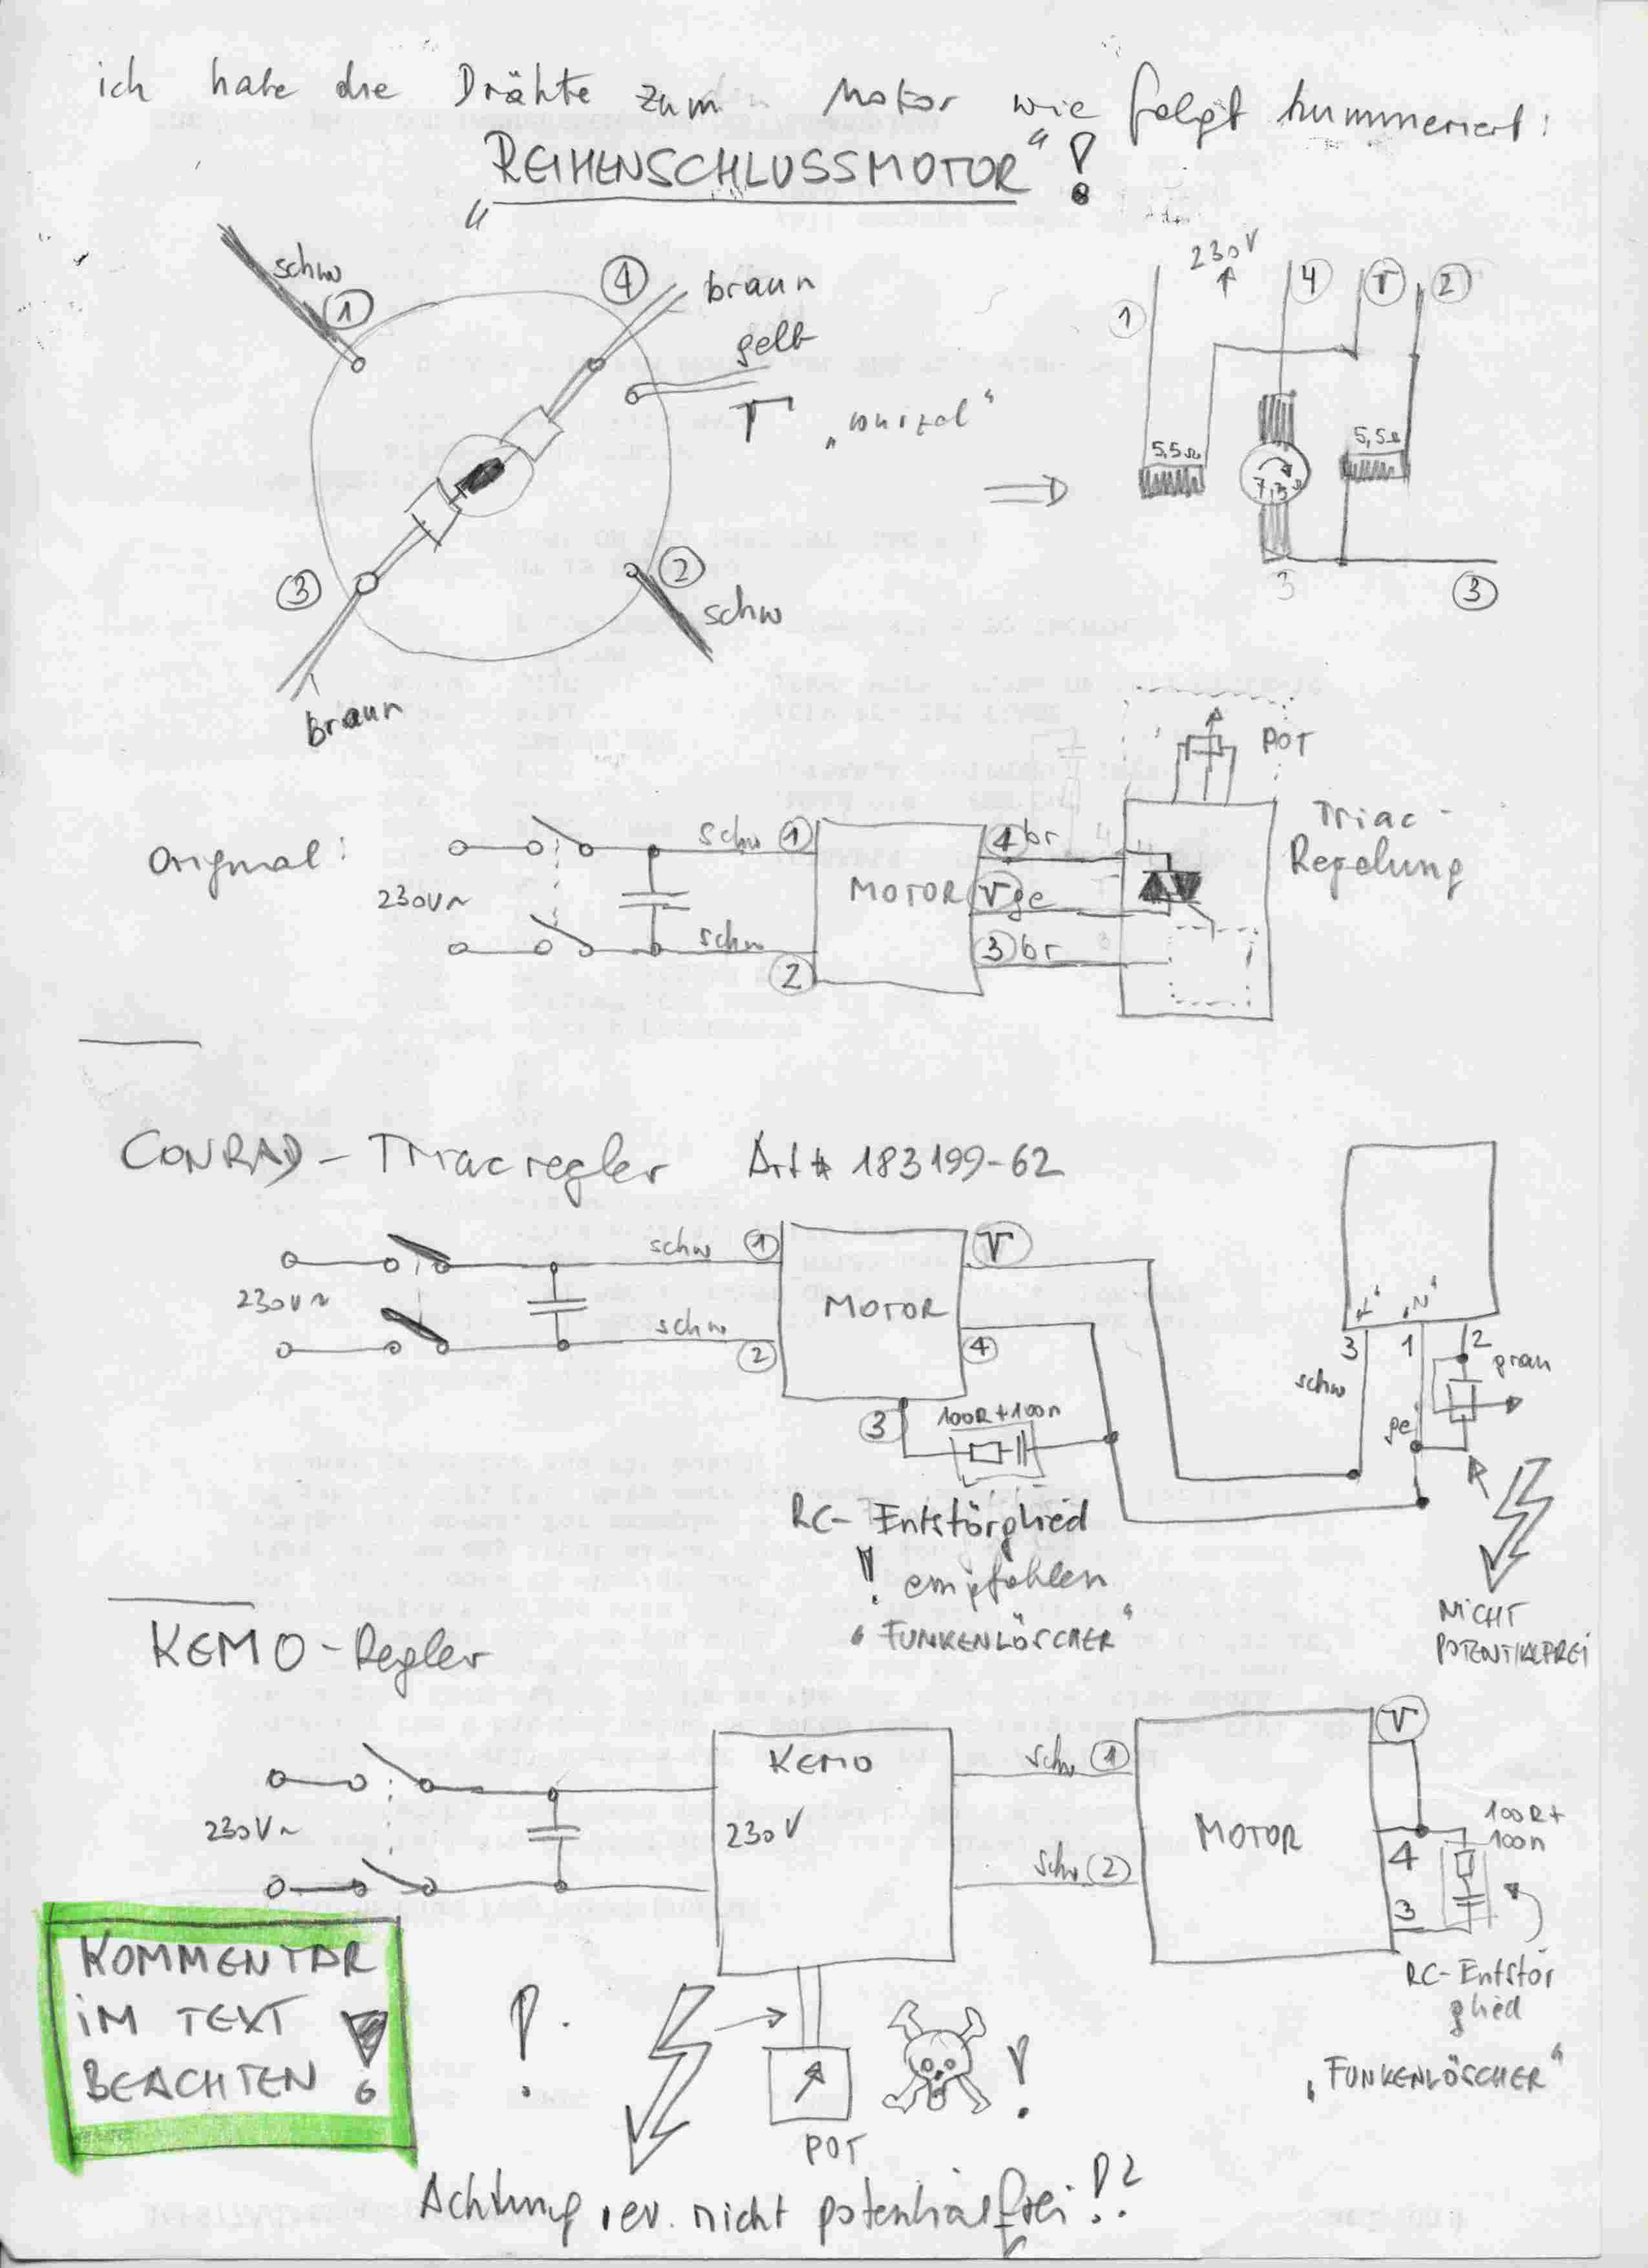 ich habe die Drähte zum Motor wie folgt nummeriert:
"REIHENSCHLUSSMOTOR" !
schw
1
4
braun
gelb
"wurzel"
3
braun
2
schw
230V
1
4
2
5,5Ω
7,3Ω
5,5Ω
3
3
Original:
230V~
schw 1
schw
2
MOTOR
4 br
ge
3 br
POT
Triac-
Regelung
CONRAD - Triacregler Art# 183199-62
230V~
schw 1
schw
2
MOTOR
4
3
100R+100n
RC-Entstörglied
! empfohlen
"FUNKENLÖSCHER"
"N"
3 1 2
schw
ge
grau
NICHT
POTENTIALFREI
KEMO-Regler
230V~
KEMO
230V
schw 1
schw 2
MOTOR
4
3
100R+
100n
RC-Entstör
glied
"FUNKENLÖSCHER"
KOMMENTAR
IM TEXT
BEACHTEN !
!
!
POT
Achtung, ev. nicht potentialfrei!?